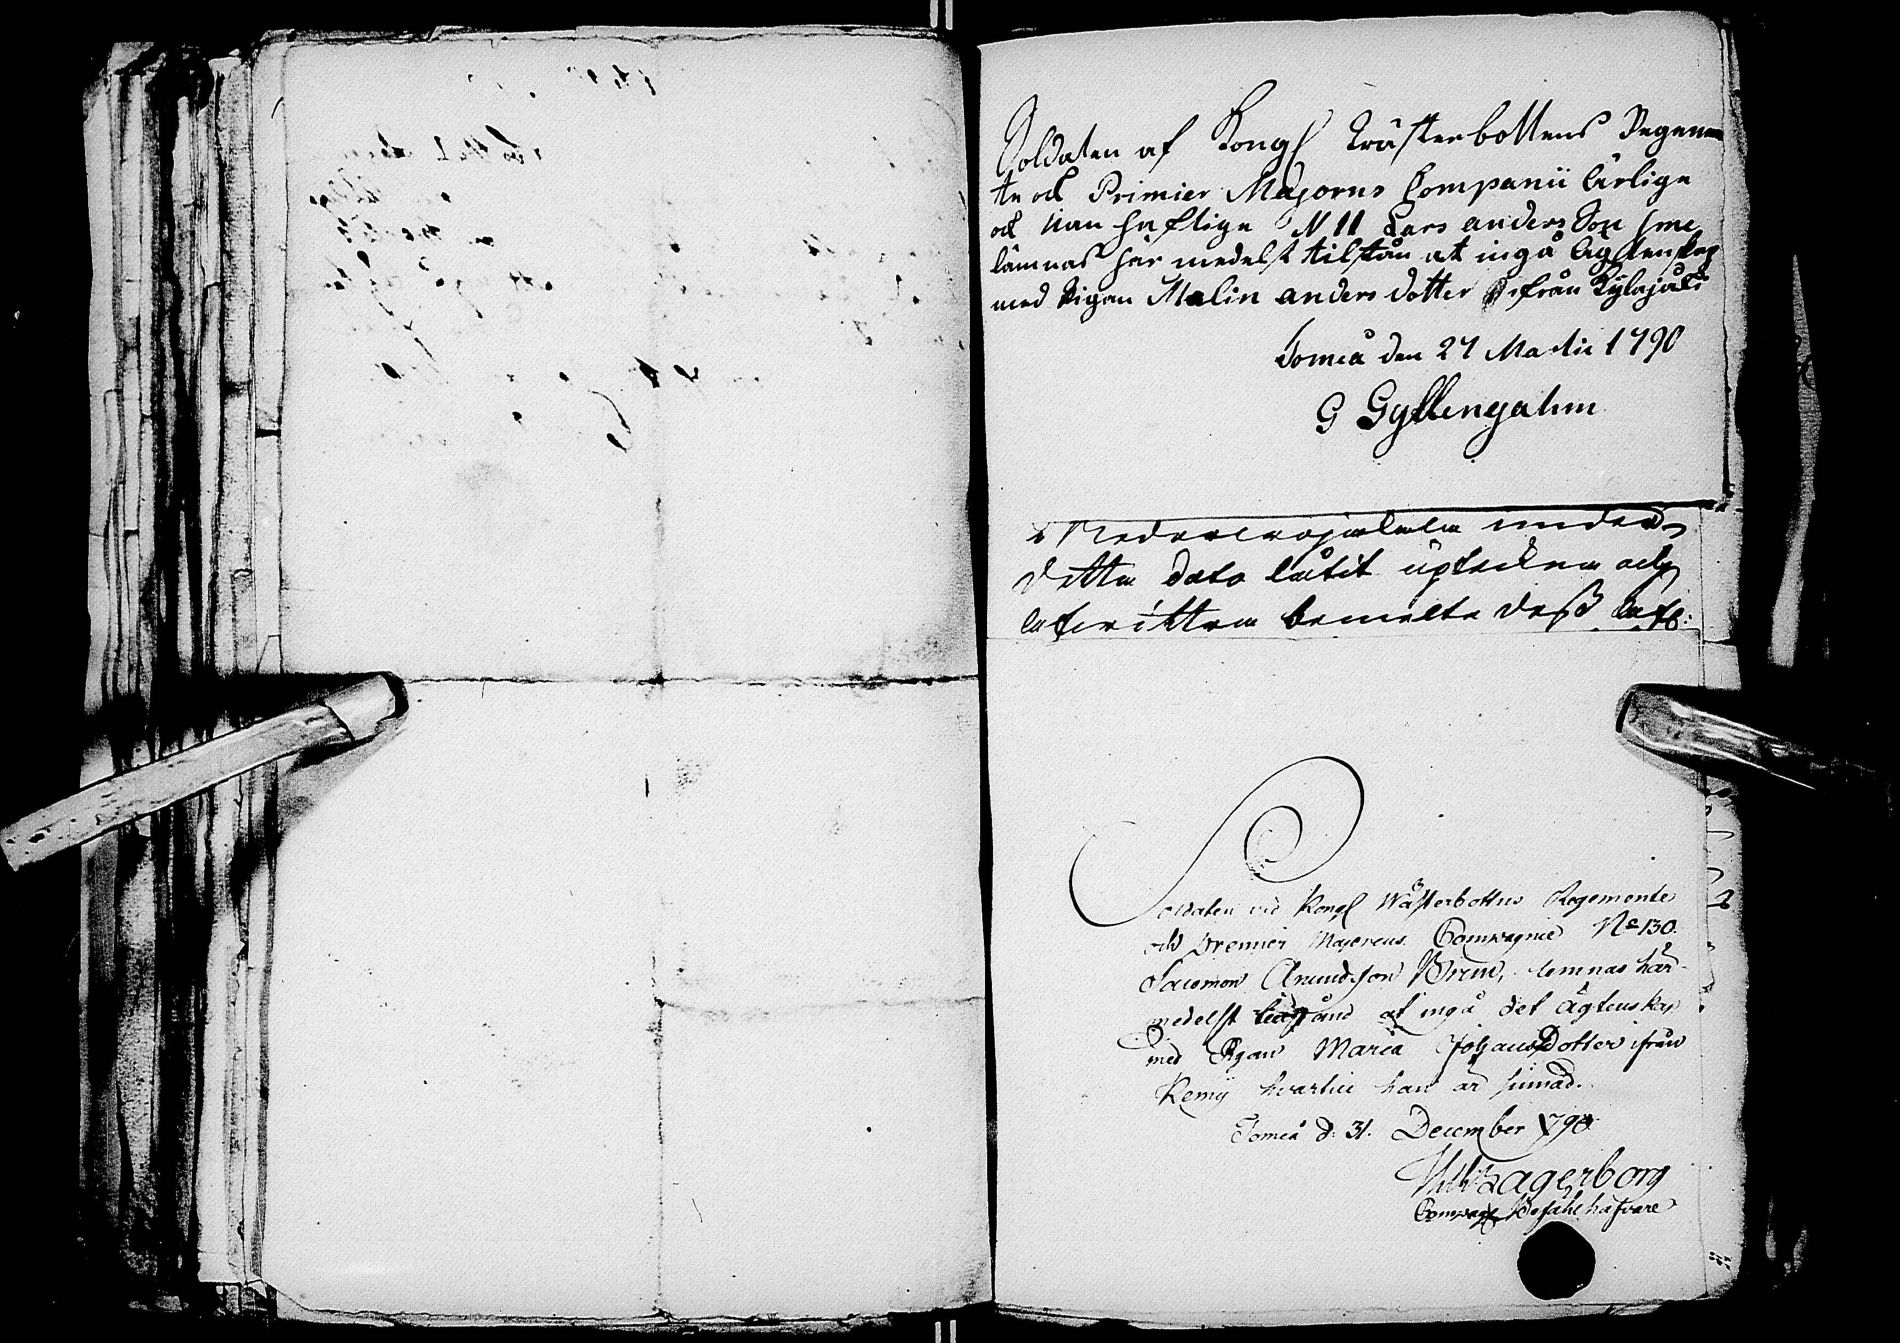 Soldaten af Kongl Wästerbottens Regeme
te och Primier Majorns Companii ärlige
och Manhaftige N 11 Lars andersSon
lämnas här medelst tilstån at ingå ägtenskap
med Pigan Malin andersdotter ifrån Kylajoki
Torneå den 27 Martii 1790
G Gyllengahm
under
Detta dato låtit upteckna och
efterrättra bemelte desß
Soldaten vid Kongl Wästerbottns Regemente
och Premier Majorens Compagnie No 130.
Salomon Anundsson Brun, lemnas här-
medelst tilstånd at ingå det Ägtenskap
med Pigan Maria JohansDotter ifrån
Kemij hvartil han är sinnad.
Torneå d: 31. December 1790.
Lagerborg
Compagn Befähl hafvare